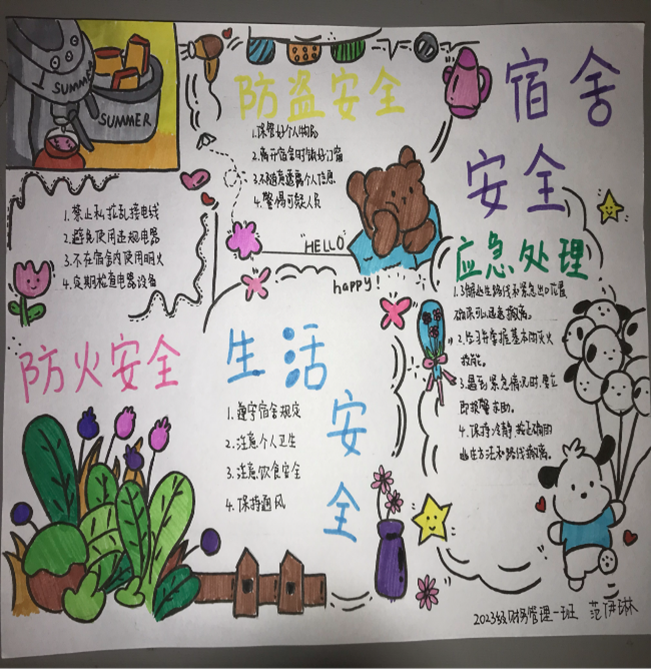 SUMMER
SUMMER
防盗安全
1.保管好个人物品
2.离开宿舍时锁好门窗
3.不随意透露个人信息
4.警惕可疑人员
宿舍
安全
1.禁止私拉乱接电线
2.避免使用违规电器
3.不在宿舍内使用明火
4.定期检查电器设备
防火安全
"HELLO"
happy!
应急处理
1.了解逃生路线和紧急出口位置
确保可以迅速撤离。
2.学习并掌握基本的灭火
技能。
3.遇到紧急情况时,要立
即报警求助。
4.保持冷静,按正确的
逃生方法和路线撤离。
生活
安
全
1.遵守宿舍规定
2.注意个人卫生
3.注意饮食安全
4.保持通风
2023级财务管理一班 范伊琳